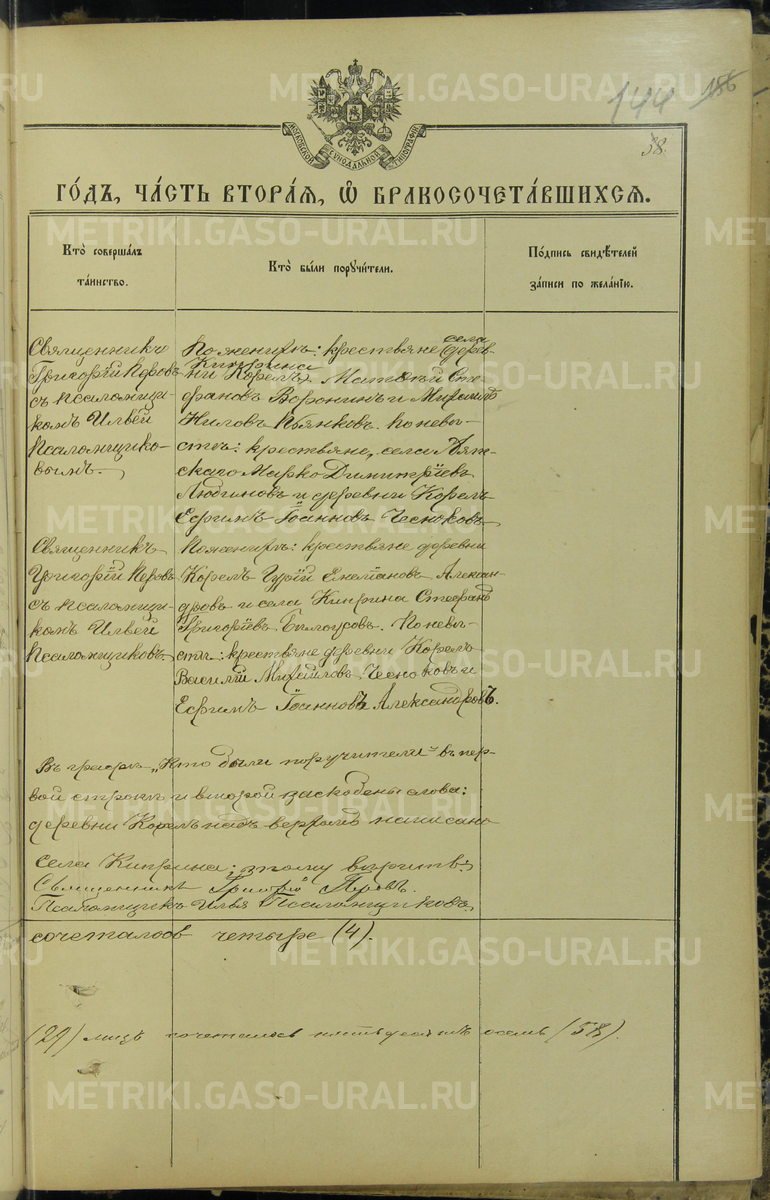 144 186
МОСКОВСКОЙ СѴНОДАЛЬНОЙ ТИПОГРАФІИ
38.
ГО́ДЪ, ЧА́СТЬ ВТОРА́Я, Ѡ҆ БРАКОСОЧЕТА́ВШИХСЯ.
Кто̀ совершалъ
та́инство.
Кто̀ бы́ли поручи́тели.
По́дпись свидѣ́телей
за́писи по жела́нію.
Священникъ
Григорій Перовъ
съ псаломщи-
комъ Ильей
Псаломщико-
вымъ.
По женихѣ: крестьяне (дерев-
села
ни Корелъ) Матвѣй Сте-
Киприна
фановъ Воронинъ и Михаилъ
Ниловъ Пьянковъ. По невѣ-
стѣ: крестьяне, села Аят-
скаго Марко Димитріевъ
и деревни Корелъ
Ефримъ Іоанновъ Чесноковъ
Священникъ
Григорій Перовъ
съ псаломщи-
комъ Ильей
Псаломщиковъ.
По женихѣ: крестьяне деревни
Корелъ Гурій Емельяновъ Алексан-
дровъ и села Киприна Стефанъ
Григоріевъ Бѣлоусовъ. По невѣ-
стѣ: крестьяне деревни Корелъ
Василій Михаиловъ Чесноковъ и
Ефримъ Іоанновъ Александровъ.
Въ графѣ „Кто были поручители" въ пер-
вой строкѣ и второй заскоблены слова:
деревни Корелъ надъ верхомъ написано
села Киприна; этому вѣрить:
Священникъ Григорій Перовъ.
Псаломщикъ Илья Псаломщиковъ.
сочеталось четыре (4).
(29) лицъ сочеталось пятьдесятъ осемь (58).
METRIKI.GASO-URAL.RU